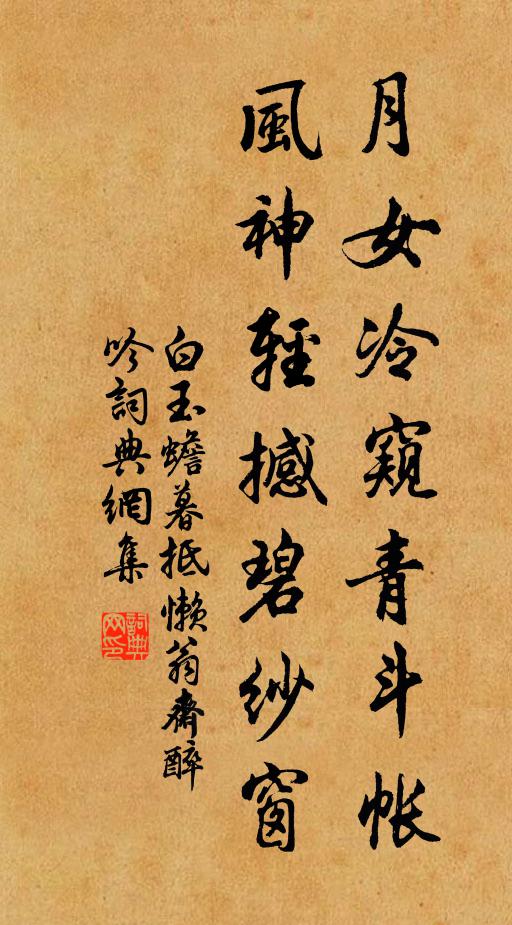 月女冷窺青斗帳
風神輕撼碧紗窗
白玉蟾暮抵懶翁齋醉
吟詞典網集
詞典
网印